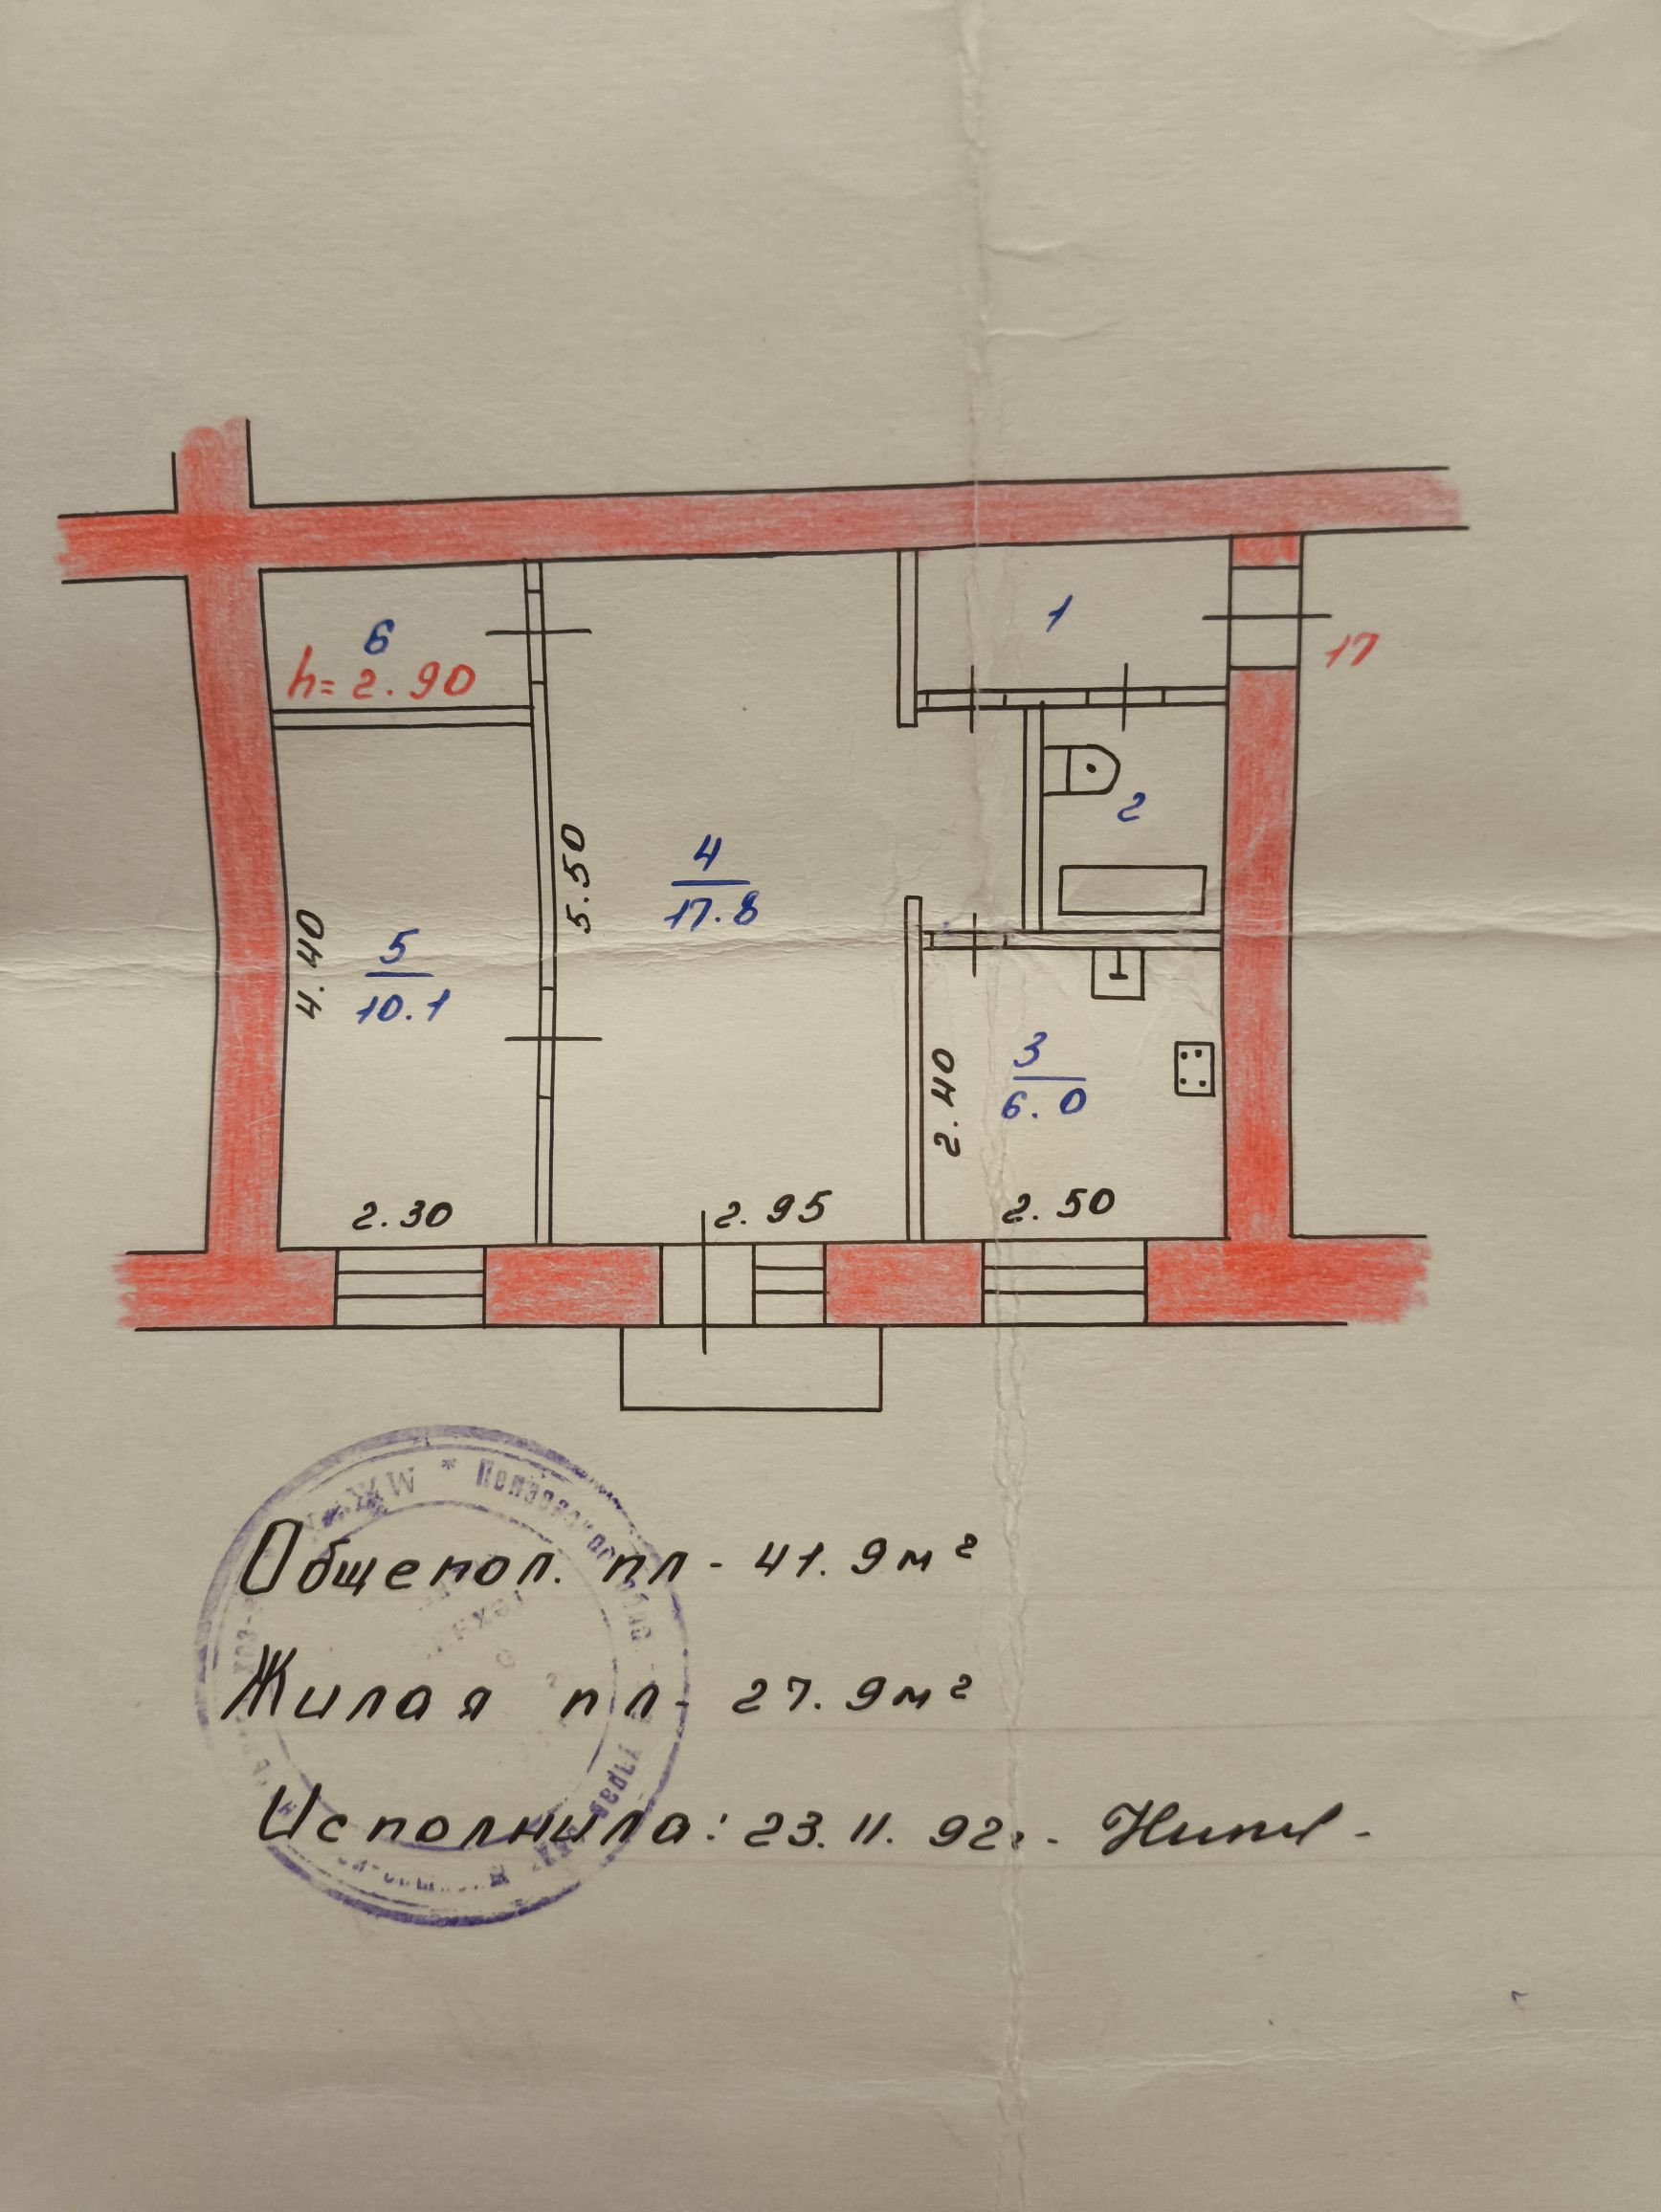 1
17
6
h= 2.90
2
5.50
4
17.8
4.40
5
10.1
3
6.0
2.40
2.30
2.95
2.50
Общепол. пл - 41.9м²
Жилая пл- 27.9м²
Исполнила: 23.11.92г.